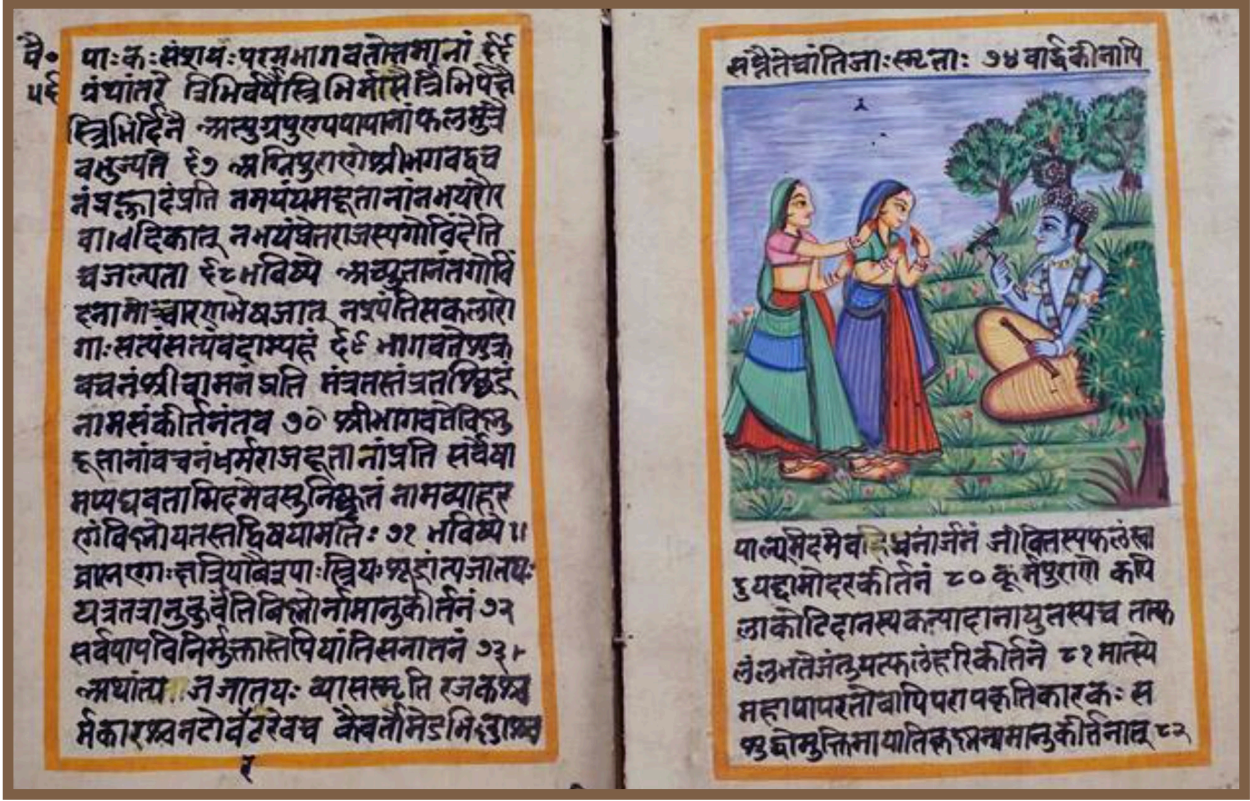 वै॰
५६
पाः कः संशयः परमभागवतोत्तमानां ६६
ग्रंथांतरे त्रिभिर्वर्षैस्त्रिभिर्मासैस्त्रिभिपक्षै
स्त्रिभिर्दिनै अत्युग्रपुण्यपापानां फलमुत्रै
वभुज्यते ६७ अग्निपुराणे श्रीभगवद्वच
नंप्रह्लादंप्रति नभयंयमदूतानांनभयंरौर
वादिकात् नभयंप्रेतराजस्यगोविंदेति
चजल्पता ६८ भविष्ये अच्युतानंतगोविं
दनामोच्चारणभेषजात् नश्यंतिसकलारो
गाः सत्यंसत्यंवदाम्यहं ६९ भागवतेशुक्र
वचनंश्रीवामनंप्रति मंत्रतस्तंत्रतश्छिद्रं
नामसंकीर्तनंतव ७० श्रीभागवतेविष्णु
दूतानांवचनंधर्मराजदूतानांप्रति सर्वेषा
मप्यघवतामिदमेवसुनिष्कृतं नामव्याहर
णंविष्णोयतस्तद्विषयामतिः ७१ भविष्ये॥
ब्राह्मणाः क्षत्रियावैश्याः स्त्रियः शूद्रांत्यजातयः
यत्रतत्रानुकुर्वंतिविष्णोर्नामानुकीर्तनं ७२
सर्वपापविनिर्मुक्तास्तेपियांतिसनातनं ७३
अथांत्यजजातयः व्यासस्मृति रजकश्च
र्मकारश्चनटोबरटएवच कैवर्तोमेडभिल्लाश्च
२
सप्तैतेचांतिजाः स्मृताः ७४ वार्द्धकीनापि
पाल्यमिदमेवहिधनार्जनं जीवितस्यफलंस्वा
दुयद्दामोदरकीर्तनं ८० कूर्मपुराणे कपि
लाकोटिदानस्यकन्यादानायुतस्यच तत्फ
लंलभतेजंतुयत्फलंहरिकीर्तने ८१ मात्स्ये
महापापरतोवापिपरापकृतिकारकः स
शुद्धोमुक्तिमायातिकृष्णनामानुकीर्तनात् ८२